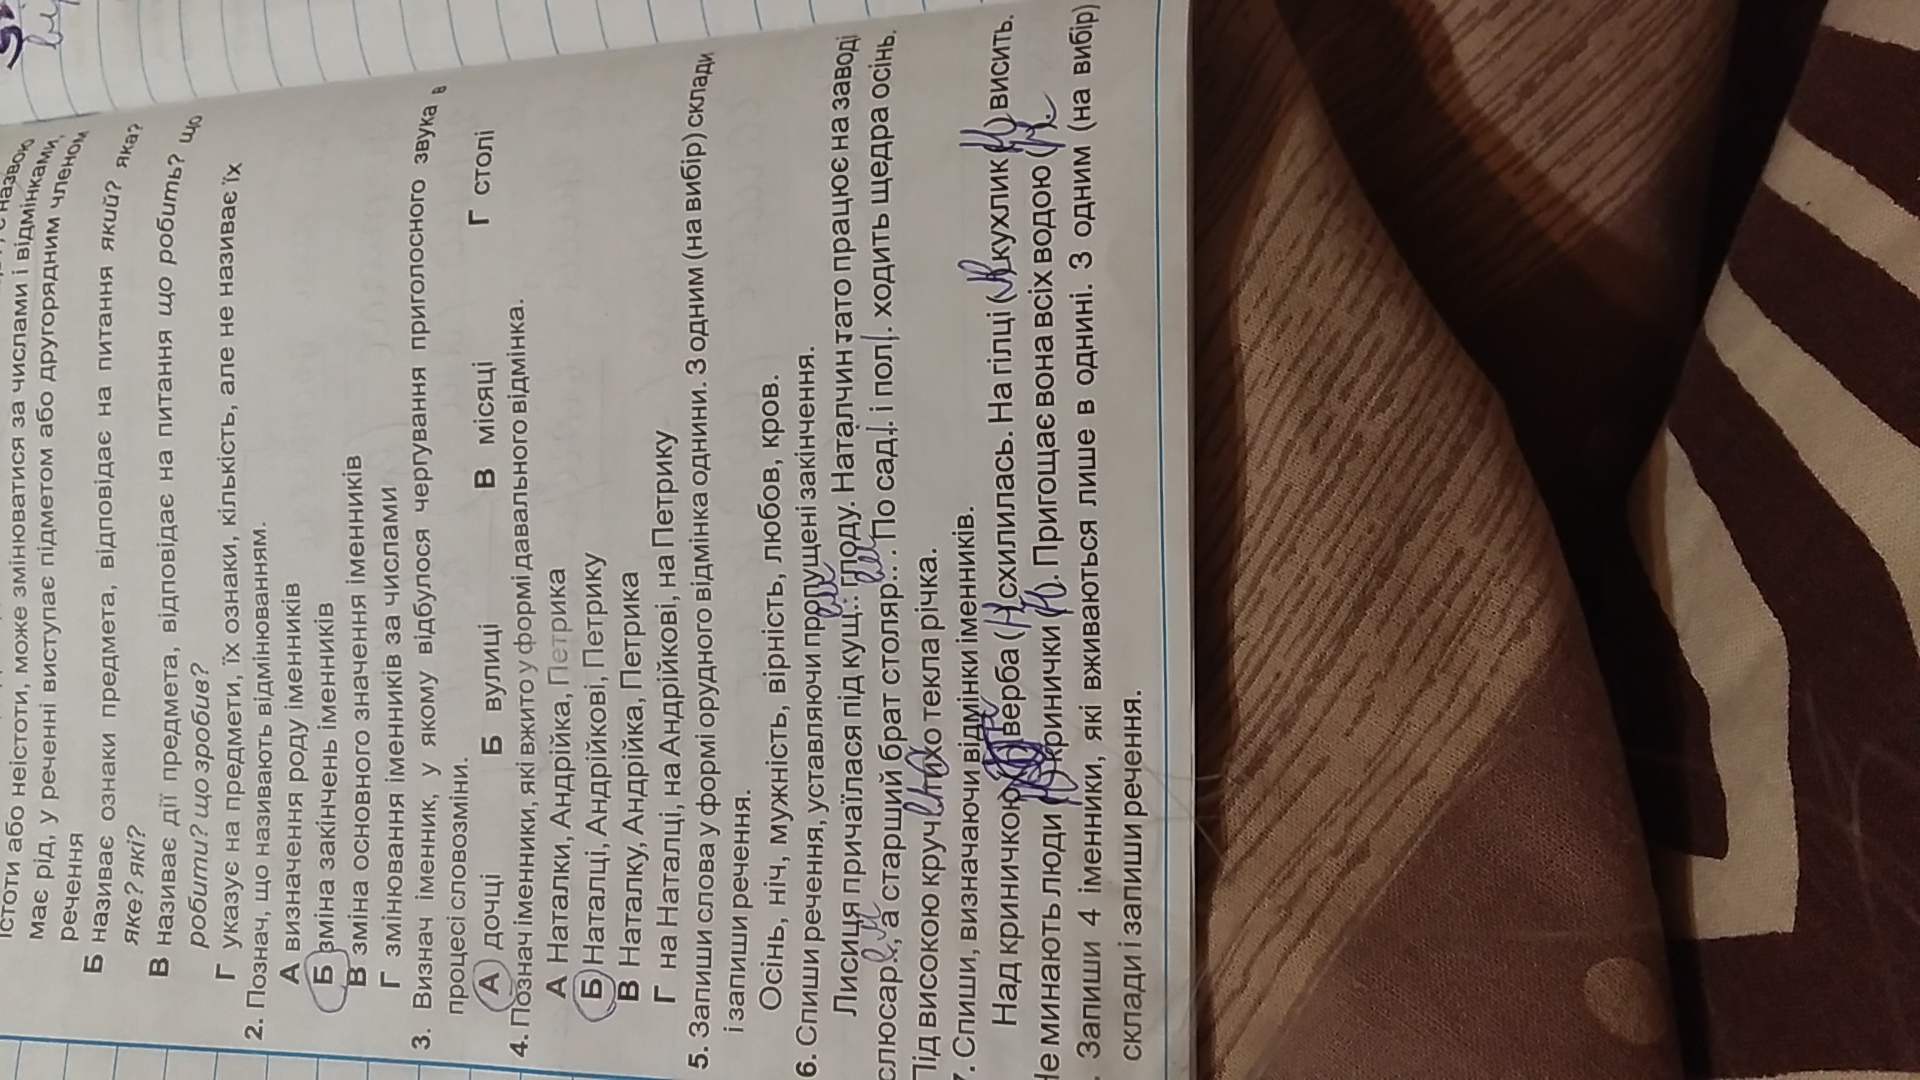 назвою
істоти або неістоти, може змінюватися за числами і відмінками,
має рід, у реченні виступає підметом або другорядним членом
речення
Б називає ознаки предмета, відповідає на питання який? яка?
яке? які?
В називає дії предмета, відповідає на питання що робить? що
робити? що зробив?
Г указує на предмети, їх ознаки, кількість, але не називає їх
2. Познач, що називають відмінюванням.
А визначення роду іменників
Б зміна закінчень іменників
В зміна основного значення іменників
Г змінювання іменників за числами
3. Визнач іменник, у якому відбулося чергування приголосного звука в
процесі словозміни.
А дочці Б вулиці В місяці Г столі
4. Познач іменники, які вжито у формі давального відмінка.
А Наталки, Андрійка, Петрика
Б Наталці, Андрійкові, Петрику
В Наталку, Андрійка, Петрика
Г на Наталці, на Андрійкові, на Петрику
5. Запиши слова у формі орудного відмінка однини. З одним (на вибір) склади
і запиши речення.
Осінь, ніч, мужність, вірність, любов, кров.
6. Спиши речення, уставляючи пропущені закінчення.
Лисиця причаїлася під кущ... глоду. Наталчин тато працює на заводі
слюсар..., а старший брат столяр... . По сад.. і пол.. ходить щедра осінь.
Під високою круч тихо текла річка.
7. Спиши, визначаючи відмінки іменників.
Над криничкою верба (Н) схилилась. На гілці ( кухлик (Н) висить.
Не минають люди кринички . Пригощає вона всіх водою (
. Запиши 4 іменники, які вживаються лише в однині. З одним (на вибір)
склади і запиши речення.